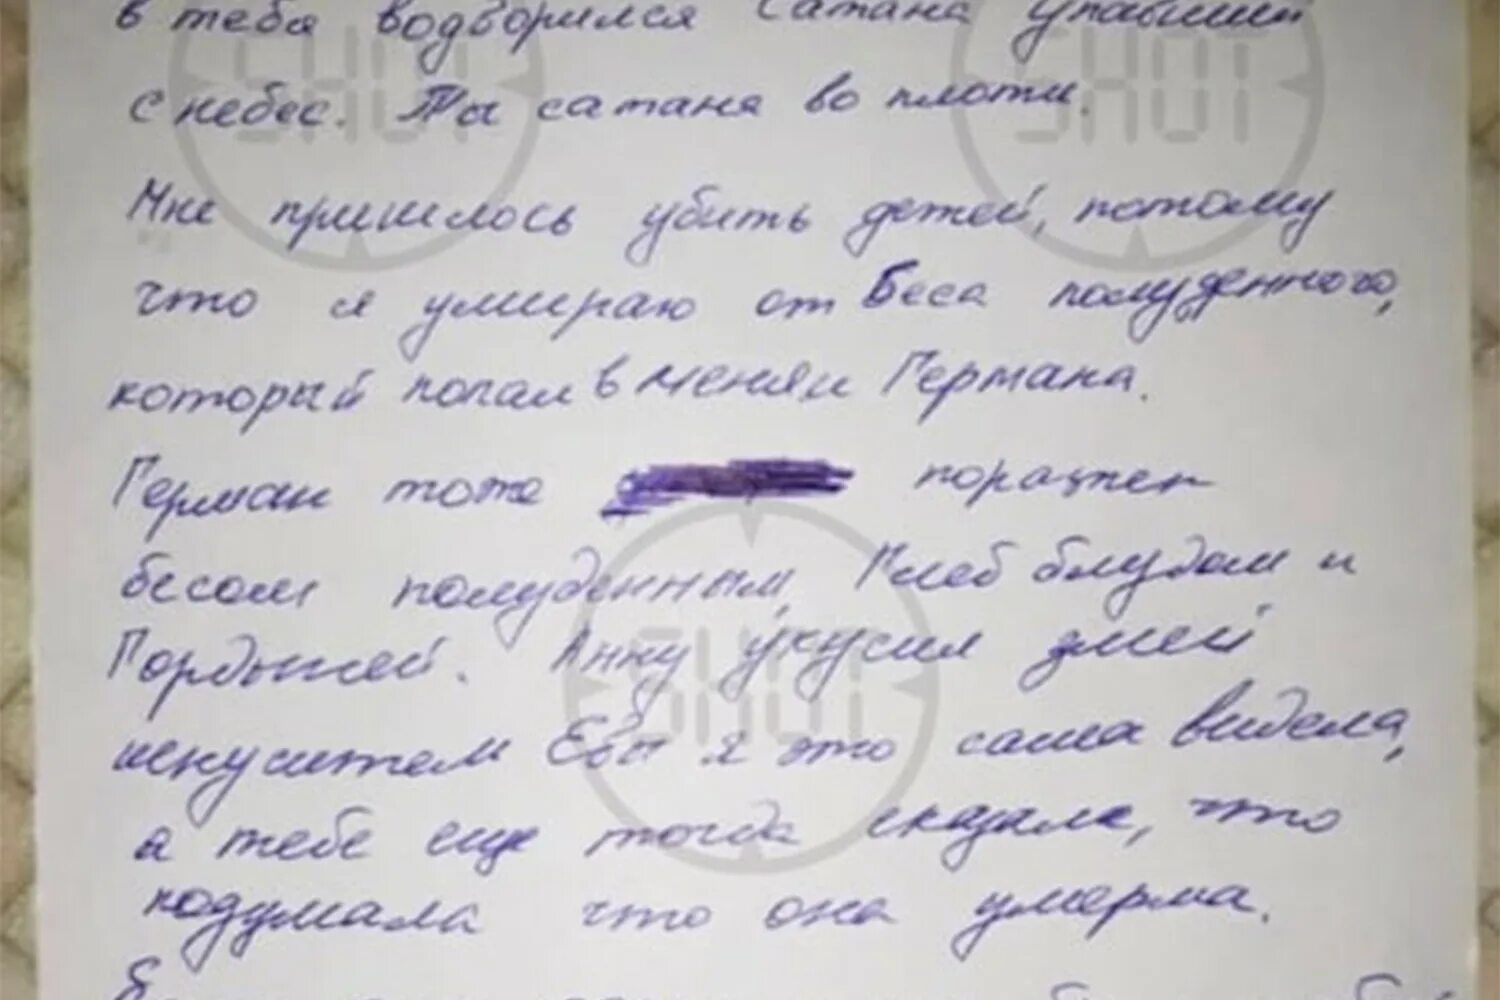 в тебя водворился Сатана упавший
с небес. Ты сатаня во плоти.
Мне пришлось убить детей, потому
что я умираю от Беса полуденного,
который попал в меня и Германа.
Герман тоже поражен
бесом полуденным, Глеб блудом и
Гордыней. Анну укусил змей
искуситем Евы я это сама видела,
а тебе еще тогда сказала, что
подумала что она умерма.
SHOT
SHOT
SHOT